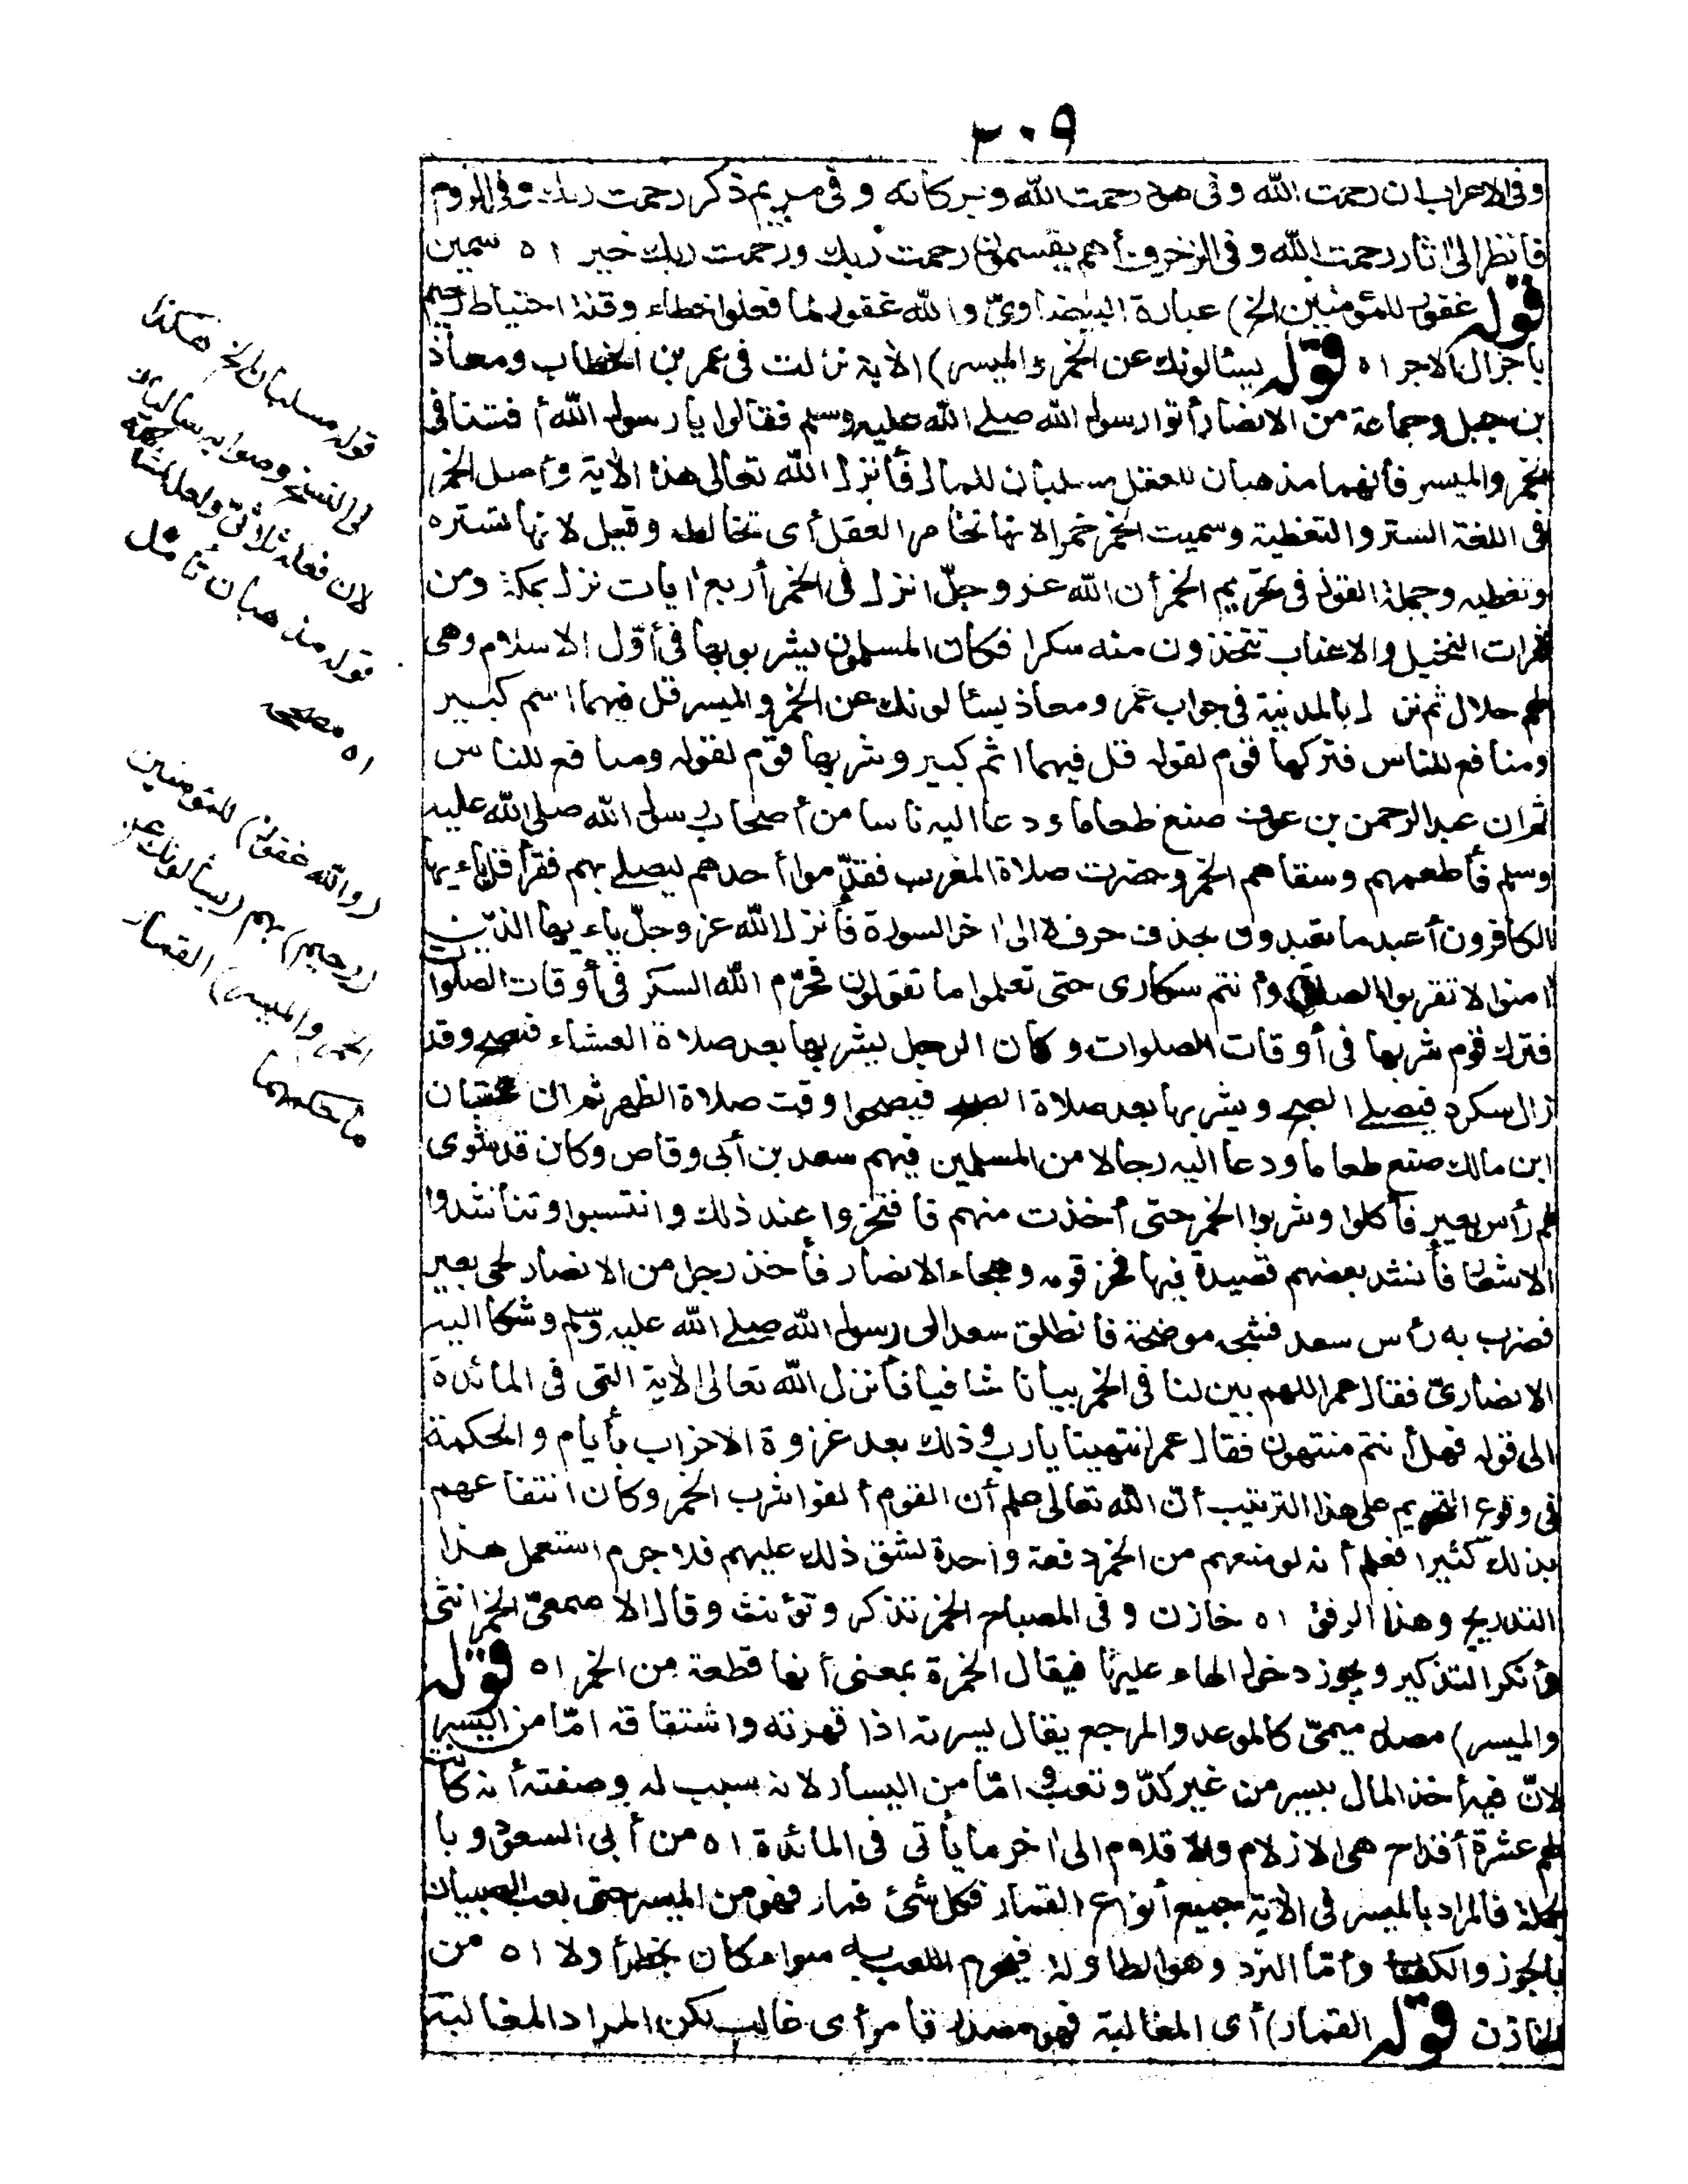 ٢٠٩
وفى الاعراف ان رحمت الله وفى هود رحمت الله وبركاته وفى مريم ذكر رحمت ربك وفى الروم
فانظر الى اثار رحمت الله وفى الزخرف أهم يقسمون رحمت ربك ورحمت ربك خير ا ه سمين
قوله غفور للمؤمنين الخ) عبارة البيضاوىّ والله غفور لما فعلوا خطاء وقلة احتياط رحيم
باجزال الاجر ا ه قوله يسئالونك عن الخمر والميسر) الأية نزلت فى عمر بن الخطاب ومعاذ
بن جبل وجماعة من الانصار أتوا رسول الله صلى الله عليه وسلم فقالوا يا رسول الله أفتنا فى
الخمر والميسر فانهما مذهبان للعقل مسلبان للمال فأنزل الله تعالى هذه الأية وأصل الخمر
فى اللغة الستر والتغطية وسميت الخمر خمرا لانها تخامر العقل أى تخالطه وقيل لانها تستره
وتغطيه وجملة القول فى تحريم الخمر أن الله عز وجلّ انزل فى الخمر أربع ايات نزل بمكة ومن
ثمرات النخيل والاعناب تتخذون منه سكرا فكان المسلمون يشربوبها فى أوّل الاسلام وهى
لهم حلال ثم نزل بالمدينة فى جواب عمر ومعاذ يسئالونك عن الخمر والميسر قل فيهما اسم كبير
ومنافع للناس فتركها قوم لقوله قل فيهما اثم كبير وشربها قوم لقوله ومنافع للناس
ثم ان عبد الرحمن بن عوف صنع طعاما ودعا اليه ناسا من أصحاب رسول الله صلى الله عليه
وسلم فأطعمهم وسقاهم الخمر وحضرت صلاة المغرب فقدّموا أحدهم ليصلى بهم فقرأ قل ياءيها
الكافرون أعبد ما تعبدون بحذف حرف لا الى اخر السورة فأنزل الله عز وجلّ ياءيها الذين
امنوا لا تقربوا الصلاة وأنتم سكارى حتى تعلموا ما تقولون فحرّم الله السكر فى أوقات الصلوات
فترك قوم شربها فى أوقات الصلوات وكان الرجل يشربها بعد صلاة العشاء فيصبح وقد
زال سكره فيصلى الصبح ويشربها بعد صلاة الصبح فيصحوا وقت صلاة الظهر ثم ان عتبان
ابن مالك صنع طعاما ودعا اليه رجالا من المسلمين فيهم سعد بن أبى وقاص وكان قد شوى
لهم رأس بعير فأكلوا وشربوا الخمر حتى أخذت منهم فافتخروا عند ذلك وانتسبوا وتناشدوا
الاشعار فأنشد بعضهم قصيدة فيها فخر قومه وهجاء الانصار فأخذ رجل من الانصار لحى بعير
فضرب به رأس سعد فشجه موضحة فانطلق سعد الى رسول الله صلى الله عليه وسلم وشكا اليه
الانصارىّ فقال عمر اللهم بين لنا فى الخمر بيانا شافيا فأنزل الله تعالى الأية التى فى المائدة
الى قوله فهل أنتم منتهون فقال عمر انتهينا يارب وذلك بعد غزوة الاحزاب بأيام والحكمة
فى وقوع التحريم على هذا الترتيب أنّ الله تعالى علم أن القوم ألفوا شرب الخمر وكان انتفاعهم
بذلك كثيرا فعلم أنه لو منعهم من الخمر دفعة واحدة لشق ذلك عليهم فلا جرم استعمل هذا
التدريج وهذا الرفق ا ه خازن وفى المصباح الخمر تذكر وتؤنث وقال الاصمعىّ الخمر انثى
وأنكر التذكير ويجوز دخول الهاء عليها فيقال الخمرة بمعنى أنها قطعة من الخمر ا ه قوله
والميسر) مصدر ميمىّ كالموعد والمرجع يقال يسرته اذا قهرته واشتقاقه امّا من اليسر
لانّ فيه أخذ المال بيسر من غير كدّ وتعب وامّا من اليسار لانه سبب له وصفته أنه كانت
لهم عشرة أقداح هى الازلام والاقلام الى اخر ما يأتى فى المائدة ا ه من أبى السعود وبا
لجملة فالمراد بالميسر فى الأية جميع أنواع القمار فكل شئ قمار فهو من الميسر حتى لعب الصبيان
بالجوز والكعاب وأمّا النرد وهو الطاولة فيحرم اللعب به سواء كان بخطر أولا ا ه من
الخازن قوله القمار) أى المغالبة فهو مصدر قامر أى غالب لكن المراد المغالبة
قوله مسلبان الخ هكذا
فى النسخ وصوابه سالبان
لان فعله ثلاثىّ ولعله لمشاكلة
قوله مذهبان تأمل
ا ه مصححه
(والله غفور) للمؤمنين
(رحيم) بهم (يسألونك عن
الخمر والميسر) القمار
ما حكمهما